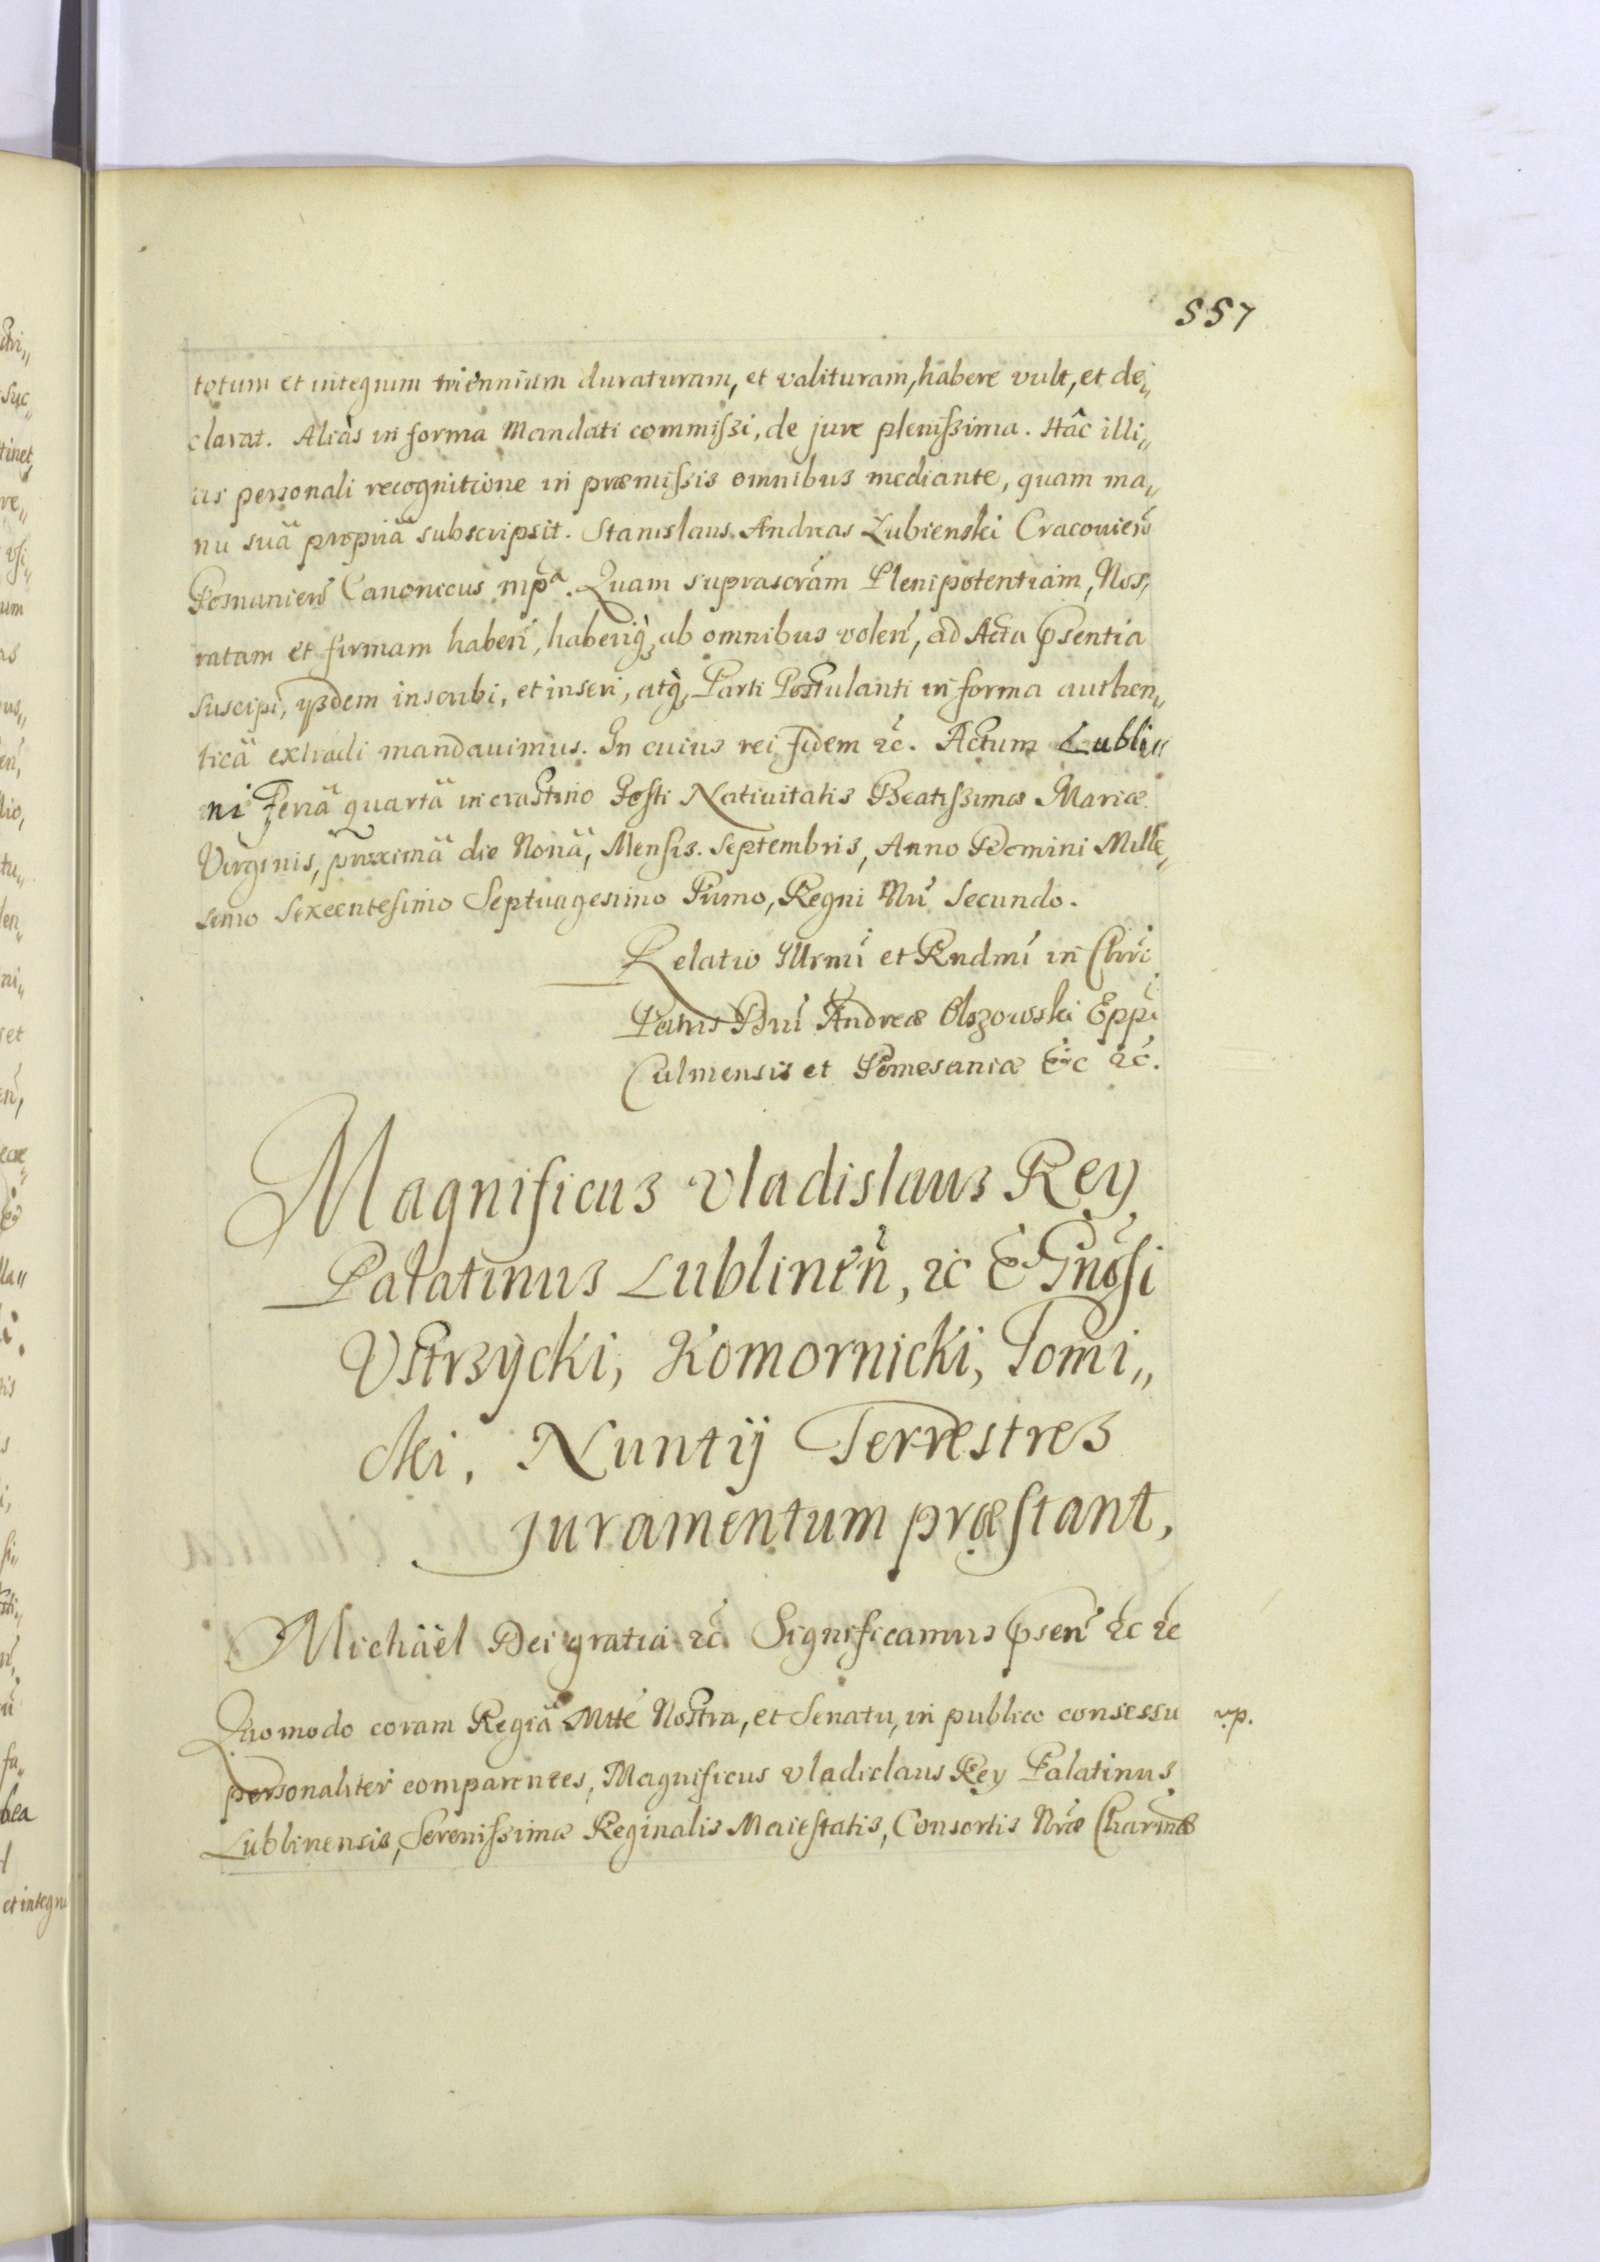 557
totum et integrum triennium duraturam, et valituram, habere vult, et de„
clarat. Aliàs in forma Mandati commissi, de jure plenissima. Hâc illi„
us personali recognitione in præmissis omnibus mediante, quam ma„
nu suä propriä subscripsit. Stanislaus Andreas Lubienski Cracovień
Posnanień Canonicus mpa. Quam suprascrám Plenipotentiam, Nos,
ratam et firmam haberi, haberiq, ab omnibus voleń, ad Acta psentia
suscipi, ijsdem inscribi, et inseri, atq, Parti Postulanti in forma authen„
ticä extradi mandavimus. In cuius rei fidem ꝛc. Actum Lubli„
ni Feriä quartä in crastino Festi Nativitatis Beatissimæ Mariæ
Virginis, proximä die Nonä, Mensis Septembris, Anno Domini Mille„
simo Sexcentesimo Septuagesimo Primo, Regni Nri Secundo.
Relatio Illrmi et Rndmi in Chri
Patris Dni Andreæ Olszowski Eppi
Culmensis et Pomesaniæ &c ꝛc.
Magnificus Vladislaus Rey
Palatinus Lublineń, ꝛc & Gnosi
Vstrzycki, Komornicki, Tomi„
cki. Nuntij Terrestres
juramentum præstant,
Michäel Dei gratia ꝛc. Significamus pseń ꝛc ꝛc
Quomodo coram Regiä Mtte Nostra, et Senatu, in publico consessu vp.
personaliter comparentes, Magnificus Vladislaus Rey Palatinus
Lublinensis, Serenissimæ Reginalis Maiestatis, Consortis Nræ Charmæ